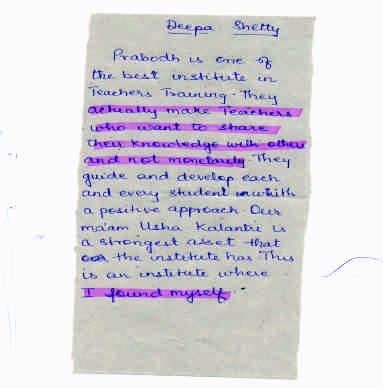 Deepa Shetty
Prabodh is one of
the best institute in
Teachers Training. They
actually make Teachers
who want to share
their knowledge with others
and not monetarily. They
guide and develop each
and every student with
a positive approach. Our
ma'am Usha Kalantri is
a strongest asset that
the institute has. This
is an institute where
I found myself.